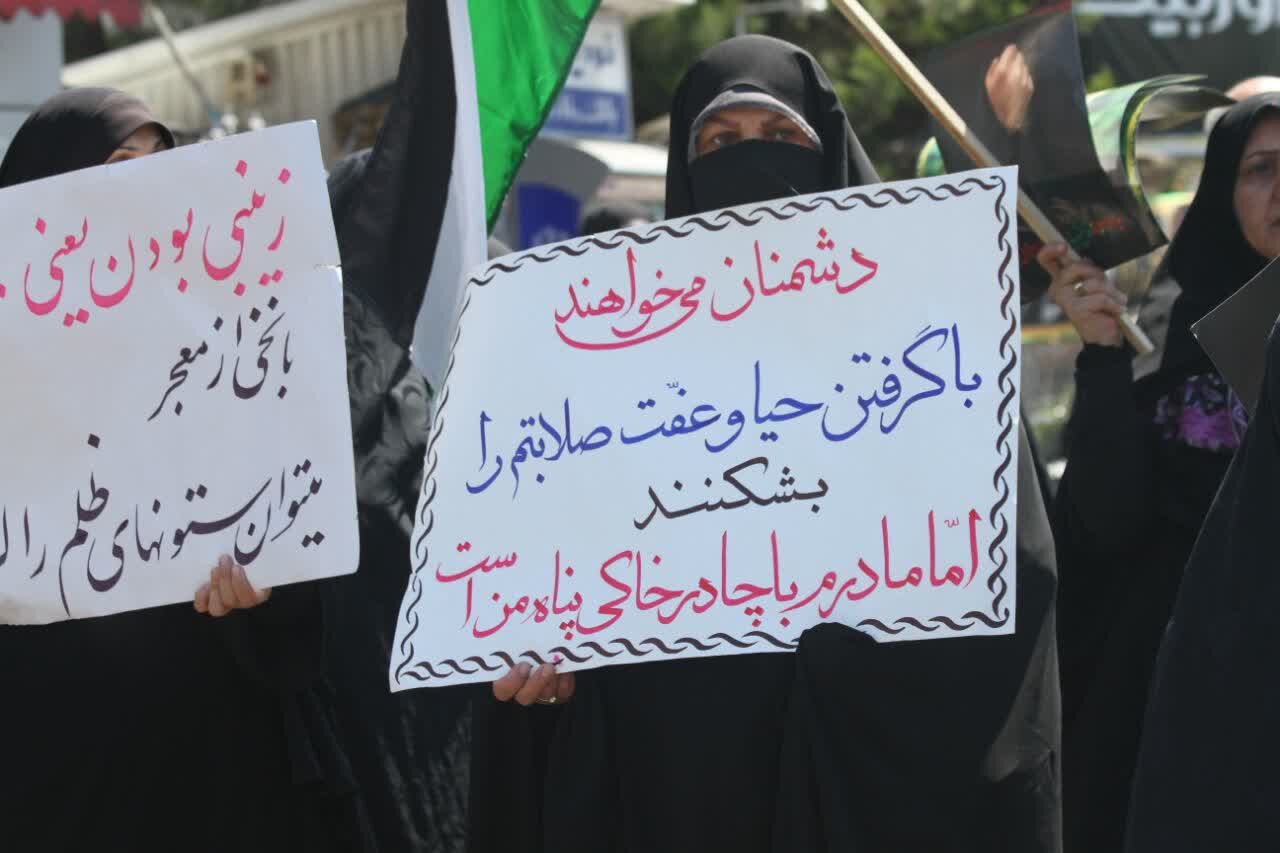 دشمنان می‌خواهند
با گرفتن حیا و عفّت صلابتم را
بشکنند
امّا مادرم با چادر خاکی پناه من است
زینبی بودن یعنی
با نخی از معجر
میتوان ستونهای ظلم را